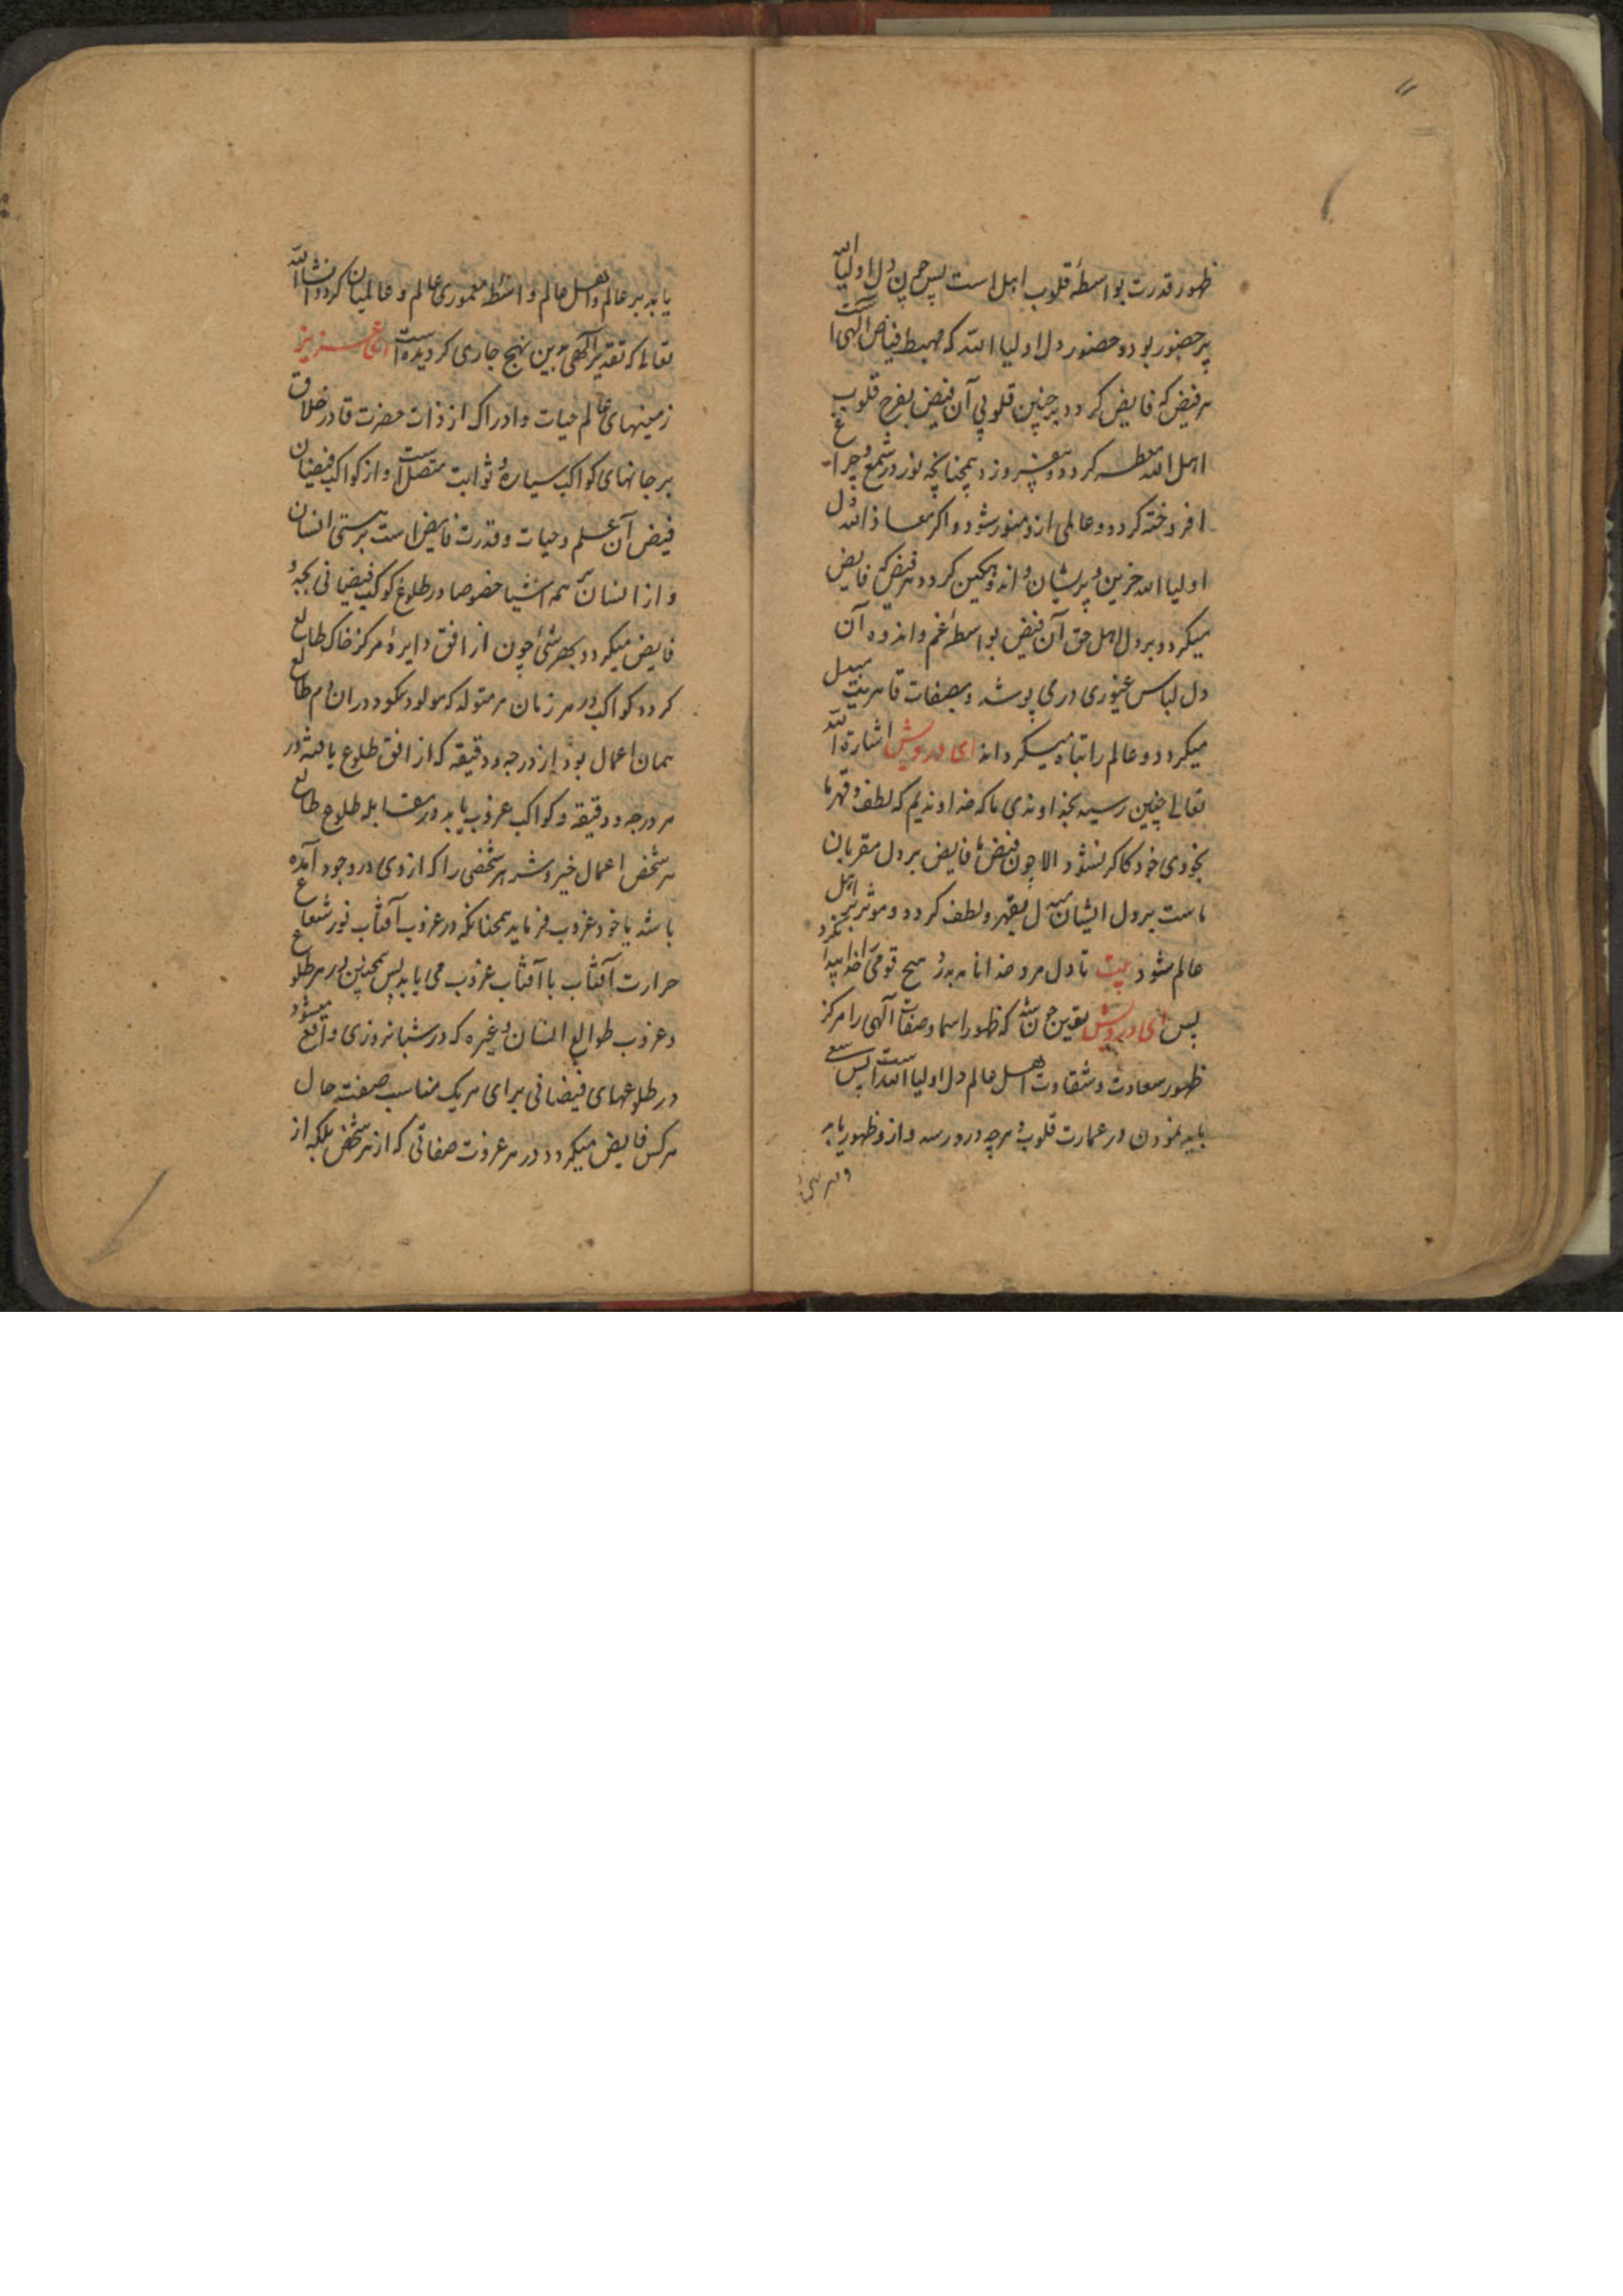 ظهور قدرت بواسطهٔ قلوب اهل است پس چون دل اولیا الله
پر حضور بود و حضور دل اولیا الله که مهبط فیاض الهی است
هر فیض که فایض گردد بر چنین قلوبی آن فیض بفرح قلوب
اهل الله معطر گردد و بیفروزد همچنانچه نور در شمع و چراغ
افروخته گردد و عالمی ازو منور شود و اگر معاذ الله دل
اولیا الله حزین و پریشان و اندوهگین گردد هر فیض که فایض
میگردد بر دل اهل حق آن فیض بواسطهٔ غم و اندوه آن
دل لباس غیوری در می پوشد و بصفات قاهریت مبدل
میگردد و عالم را تباه میگرداند ای درویش اشارة الله
تعالی چنین رسید بخداوندی ما که خداوندیم که لطف و قهر ما
بخودی خود کارگر نشود الا چون فیض ما فایض بر دل مقربان
ماست بر دل ایشان مبدل بقهر و لطف گردد و موثر بر اهل
عالم شود بیت تا دل مرد خدا نامد بدرد هیچ قومی را خدا نکرد
پس ای درویش یقین چون شد که ظهور اسما و صفات آلهی را مرکز
ظهور سعادت و شقاوت اهل عالم دل اولیا الله است پس سعی
باید نمودن در عمارت قلوب و هرچه درو رسد و ازو ظهور یابد
یابد بر عالم و اهل عالم واسطهٔ معموری عالم و عالمیان گردد انشا الله
تعالی که تقدیر الهی برین نهج جاری گردیده است ای عزیز
زمینهای عالم حیات و ادراک از ذات حضرت قادر خلاق
بر جانهای کواکب سیاره و ثوابت متصل است و از کواکب فیضان
فیض آن علم و حیات و قدرت فایض است بر هستی انسان
و از انسان بر همه اشیا خصوصا در طلوع کوکب فیضانی بجد و
فایض میگردد بهر شئ چون از افق دایرهٔ مرکز خاک طالع
گردد کواکب در هر زمان هر متولد که مولود بگردد در ان دم طالع
همان اعمال بود از درجه و دقیقه که از افق طلوع یافته در
هر درجه و دقیقه و کواکب غروب یابد در مقابله طلوع طالع
هر شخص اعمال خیر و شر هر شخصی را که از وی در وجود آمده
باشد با خود غروب فرماید همچنانکه در غروب آفتاب نور شعاع
حرارت آفتاب با آفتاب غروب می یابد پس همچنین در هر طلوع
و غروب طوالع انسان و غیره که در شبانروزی واقع میشود
در طلوعهای فیضانی برای هر یک مناسب صفت حال
هر کس فایض میگردد و در هر غروب صفاتی که از هر شخص بلکه از